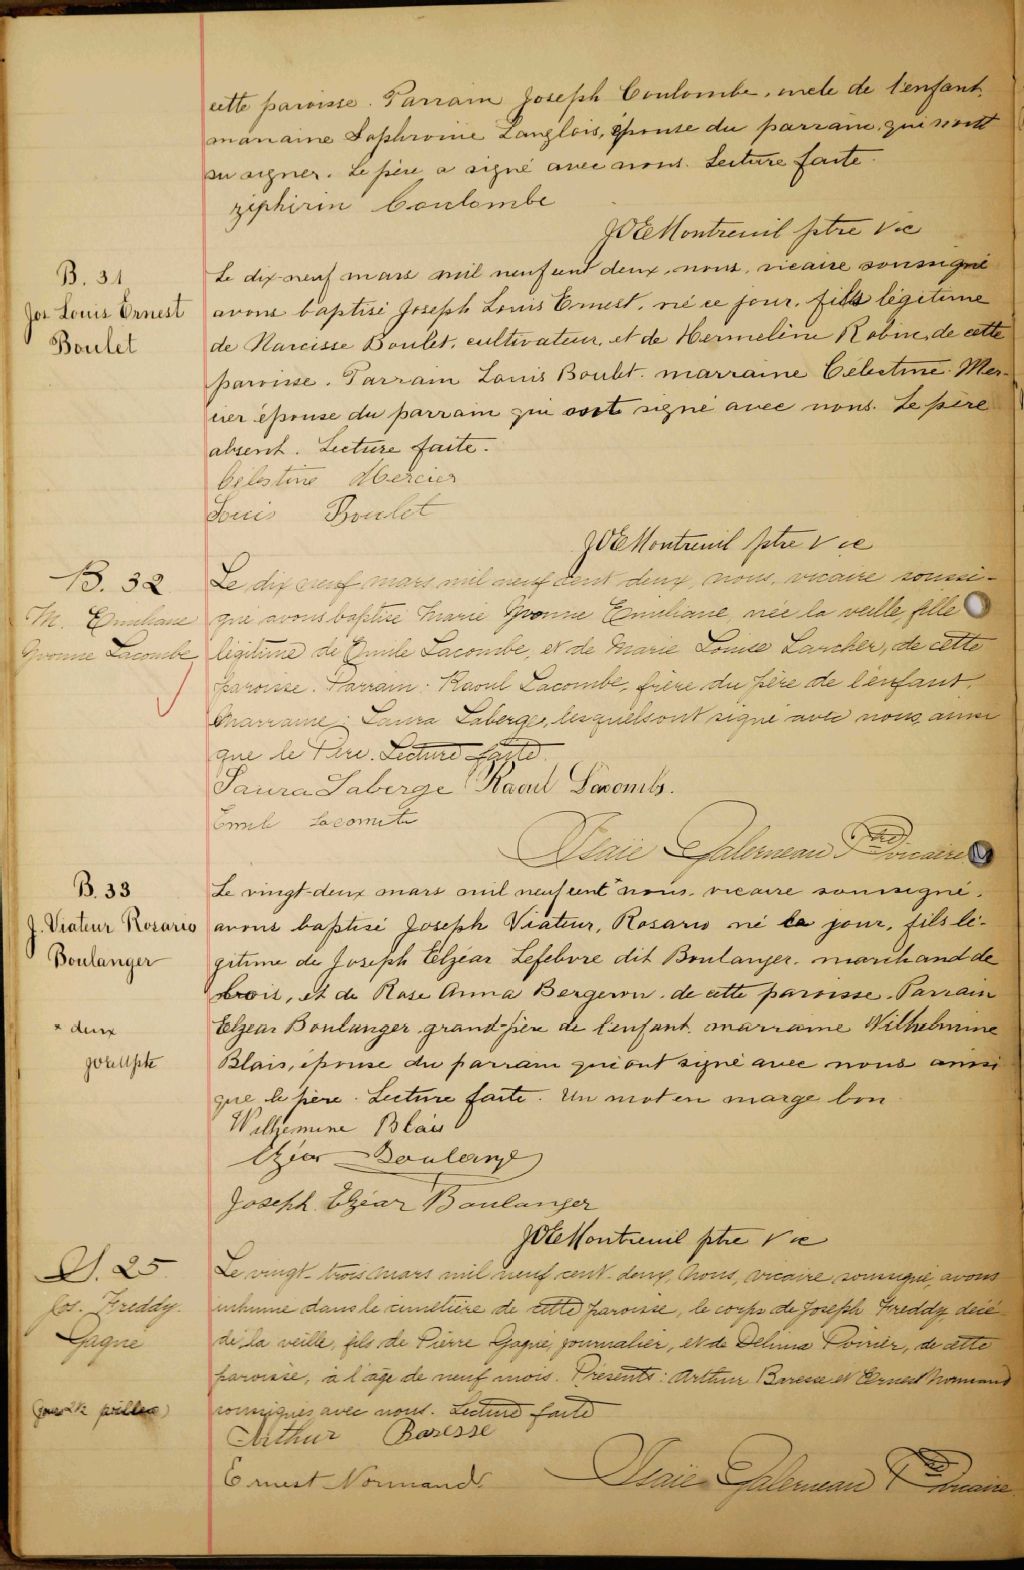 cette paroisse. Parrain Joseph Coulombe, oncle de l'enfant,
marraine Sophronie Langlois, épouse du parrain, qui n'ont
su signer. Le père a signé avec nous. Lecture faite.
Ziphirin Coulombe
JOEMontreuil ptre Vic
B. 31
Jos Louis Ernest
Boulet
Le dix-neuf mars mil neuf cent deux, nous, vicaire soussigné
avons baptisé Joseph Louis Ernest, né ce jour, fils légitime
de Narcisse Boulet, cultivateur, et de Hermeline Robin, de cette
paroisse. Parrain Louis Boulet. marraine Célestine Mer-
cier épouse du parrain qui ont signé avec nous. Le père
absent. Lecture faite.
Célestine Mercier
Louis Boulet
JOEMontreuil ptre Vic
B. 32
M. Emiliane
Yvonne Lacombe
Le dix neuf mars mil neuf cent deux, nous, vicaire soussi-
gné avons baptisé Marie Yvonne Emiliane, née la veille, fille
légitime de Emile Lacombe, et de Marie Louise Larcher, de cette
paroisse. Parrain: Raoul Lacombe, frère du père de l'enfant,
Marraine: Laura Laberge, lesquels ont signé avec nous ainsi
que le Père. Lecture faite
Laura Laberge Raoul Lacombe.
Emile Lacombe
Isaïe Galerneau Ptre vicaire
B. 33
J. Viateur Rosario
Boulanger
Le vingt-deux mars mil neuf cent * nous, vicaire soussigné,
avons baptisé Joseph Viateur, Rosario né ce jour, fils lé-
gitime de Joseph Elzéar Lefebvre dit Boulanger, marchand de
bois, et de Rose Anna Bergeron, de cette paroisse. Parrain
Elzear Boulanger grand-père de l'enfant, marraine Wilhelmine
Blais, épouse du parrain qui ont signé avec nous ainsi
que le père. Lecture faite. Un mot en marge bon
* deux
JOEM ptr
Wilhemine Blais
Elzéar Boulanger
Joseph Elzéar Boulanger
JOEMontreuil ptre Vic
S. 25
Jos. Freddy
Gagné
Le vingt-trois mars mil neuf cent-deux, Nous, vicaire soussigné, avons
inhumé dans le cimetière de cette paroisse, le corps de Joseph Freddy, décé-
dé la veille, fils de Pierre Gagné, journalier, et de Delima Poirier, de cette
paroisse, à l'âge de neuf mois. Présents: Arthur Baresse et Ernest Normand
soussignés avec nous. Lecture faite
Arthur Baresse
Ernest Normand
Isaïe Galerneau Ptre vicaire